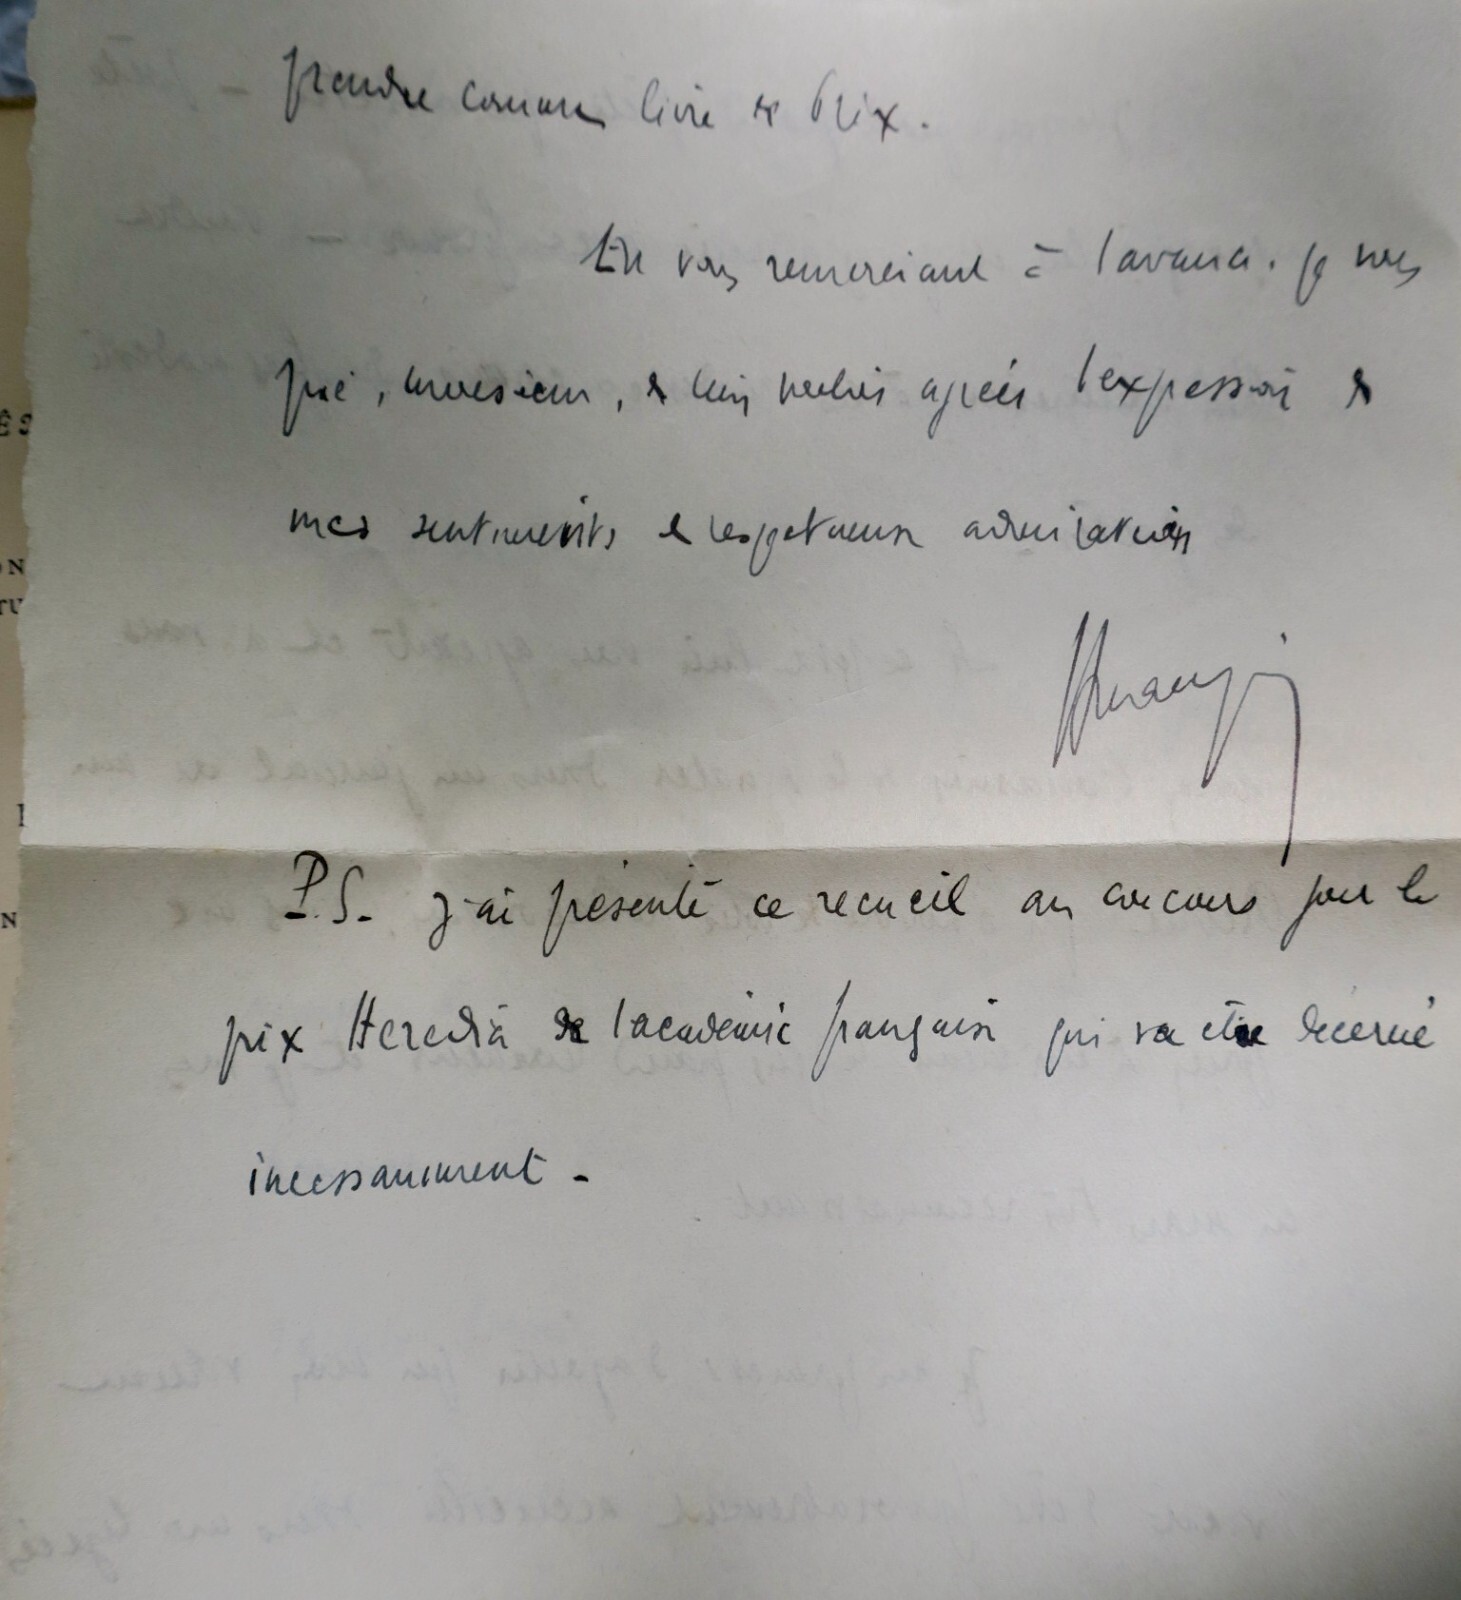 prendre comme livre de Prix.
En vous remerciant à l'avance. je vous
prie, monsieur, de bien vouloir agréer l'expression de
mes sentiments de respectueuse admiration
P.S. j'ai présenté ce recueil au concours pour le
prix Heredia de l'académie française qui va être décerné
incessamment -